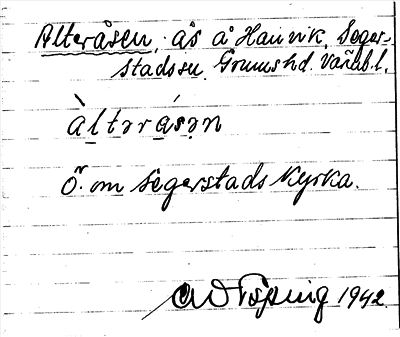 Alteråsen, ås å Hanvik, Seger-
stads sn. Grums hd. Värml.
àltərásən
Ö. om Segerstads Kyrka.
1942.